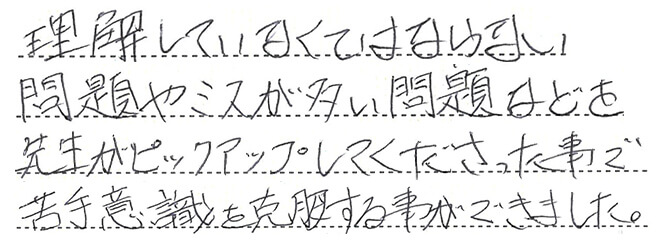 理解していなくてはならない
問題やミスが多い問題などを
先生がピックアップしてくださった事で
苦手意識を克服する事ができました。